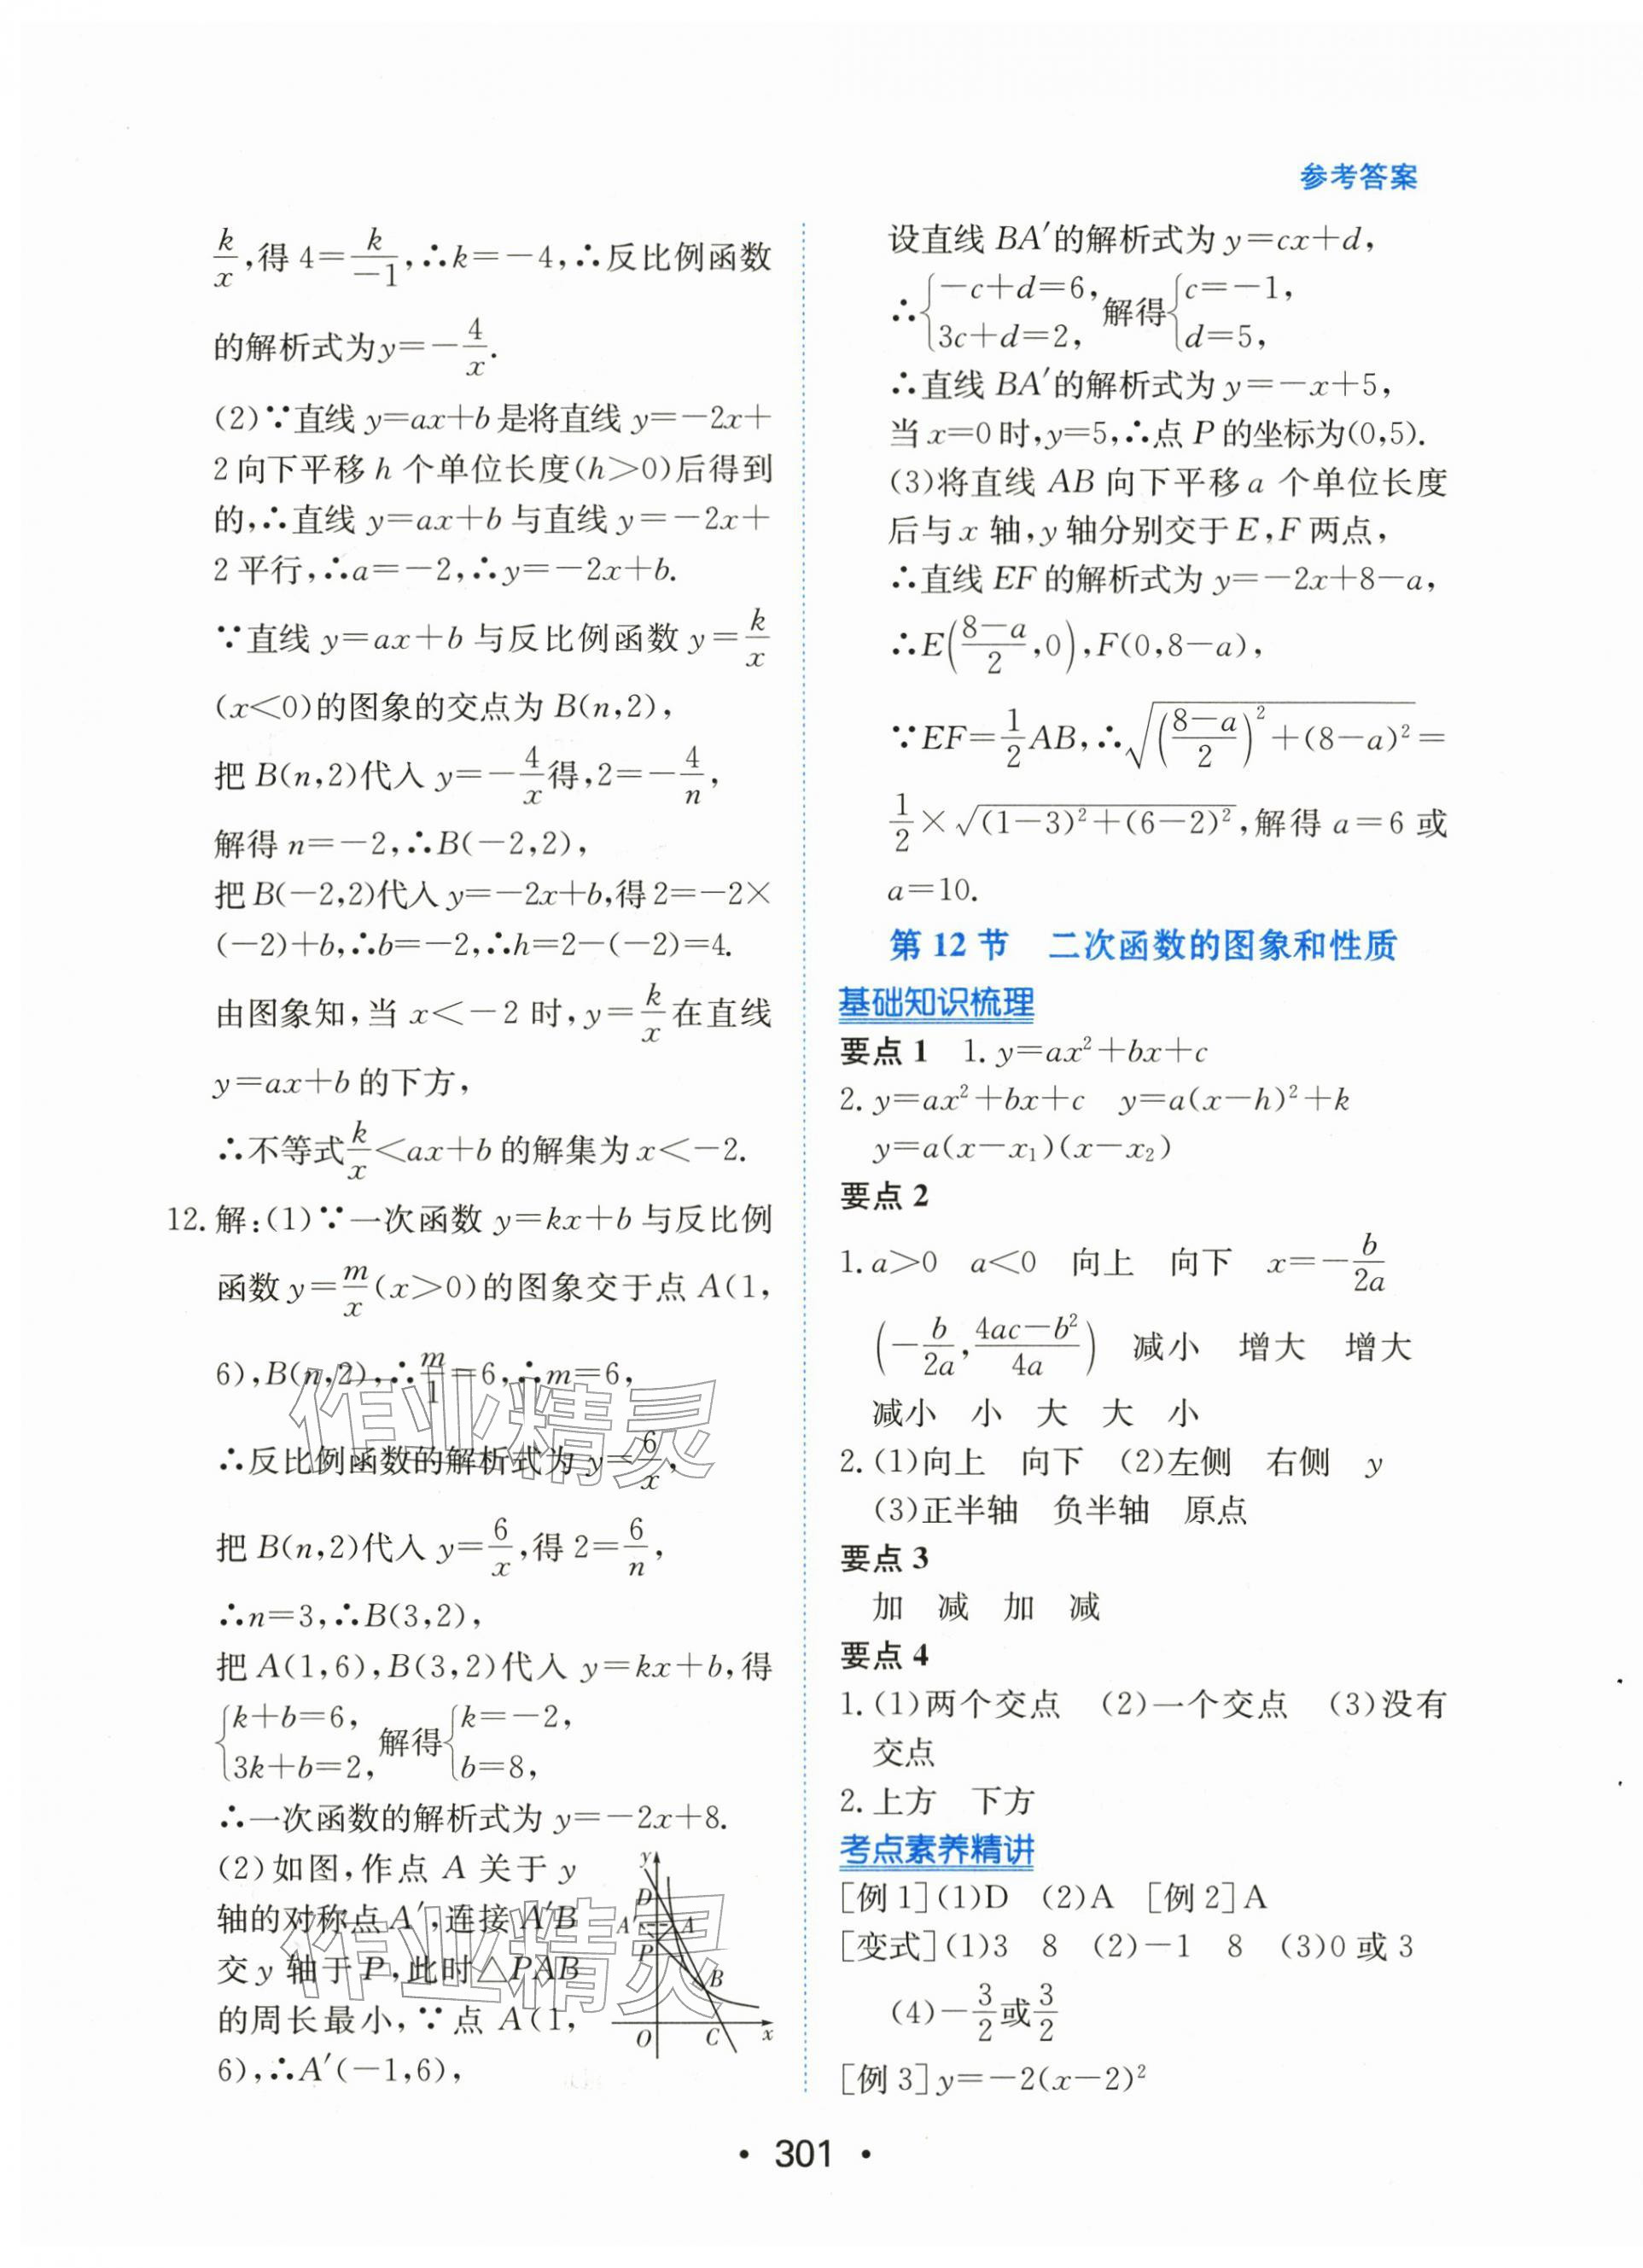 参考答案
k/x,得4=k/-1,∴k=-4,∴反比例函数
的解析式为y=-4/x.
(2)∵直线y=ax+b是将直线y=-2x+
2向下平移h个单位长度(h>0)后得到
的,∴直线y=ax+b与直线y=-2x+
2平行,∴a=-2,∴y=-2x+b.
∵直线y=ax+b与反比例函数y=k/x
(x<0)的图象的交点为B(n,2),
把B(n,2)代入y=-4/x得,2=-4/n,
解得n=-2,∴B(-2,2),
把B(-2,2)代入y=-2x+b,得2=-2×
(-2)+b,∴b=-2,∴h=2-(-2)=4.
由图象知,当x<-2时,y=k/x在直线
y=ax+b的下方,
∴不等式k/x<ax+b的解集为x<-2.
12.解:(1)∵一次函数y=kx+b与反比例
函数y=m/x(x>0)的图象交于点A(1,
6),B(n,2),∴m/1=6,∴m=6,
∴反比例函数的解析式为y=6/x,
把B(n,2)代入y=6/x,得2=6/n,
∴n=3,∴B(3,2),
把A(1,6),B(3,2)代入y=kx+b,得
{k+b=6, 3k+b=2, 解得{k=-2, b=8,
∴一次函数的解析式为y=-2x+8.
(2)如图,作点A关于y
轴的对称点A′,连接A′B
交y轴于P,此时△PAB
的周长最小,∵点A(1,
6),∴A′(-1,6),
y
D
A′ A
P
B
O C x
设直线BA′的解析式为y=cx+d,
∴{-c+d=6, 3c+d=2, 解得{c=-1, d=5,
∴直线BA′的解析式为y=-x+5,
当x=0时,y=5,∴点P的坐标为(0,5).
(3)将直线AB向下平移a个单位长度
后与x轴,y轴分别交于E,F两点,
∴直线EF的解析式为y=-2x+8-a,
∴E((8-a)/2,0),F(0,8-a),
∵EF=1/2AB,∴√(((8-a)/2)²+(8-a)²)=
1/2×√((1-3)²+(6-2)²),解得a=6或
a=10.
第12节 二次函数的图象和性质
基础知识梳理
要点1 1.y=ax²+bx+c
2.y=ax²+bx+c y=a(x-h)²+k
y=a(x-x₁)(x-x₂)
要点2
1.a>0 a<0 向上 向下 x=-b/2a
(-b/2a,(4ac-b²)/4a) 减小 增大 增大
减小 小 大 大 小
2.(1)向上 向下 (2)左侧 右侧 y
(3)正半轴 负半轴 原点
要点3
加 减 加 减
要点4
1.(1)两个交点 (2)一个交点 (3)没有
交点
2.上方 下方
考点素养精讲
[例1](1)D (2)A [例2]A
[变式](1)3 8 (2)-1 8 (3)0或3
(4)-3/2或3/2
[例3]y=-2(x-2)²
作业精灵
作业精灵
• 301 •